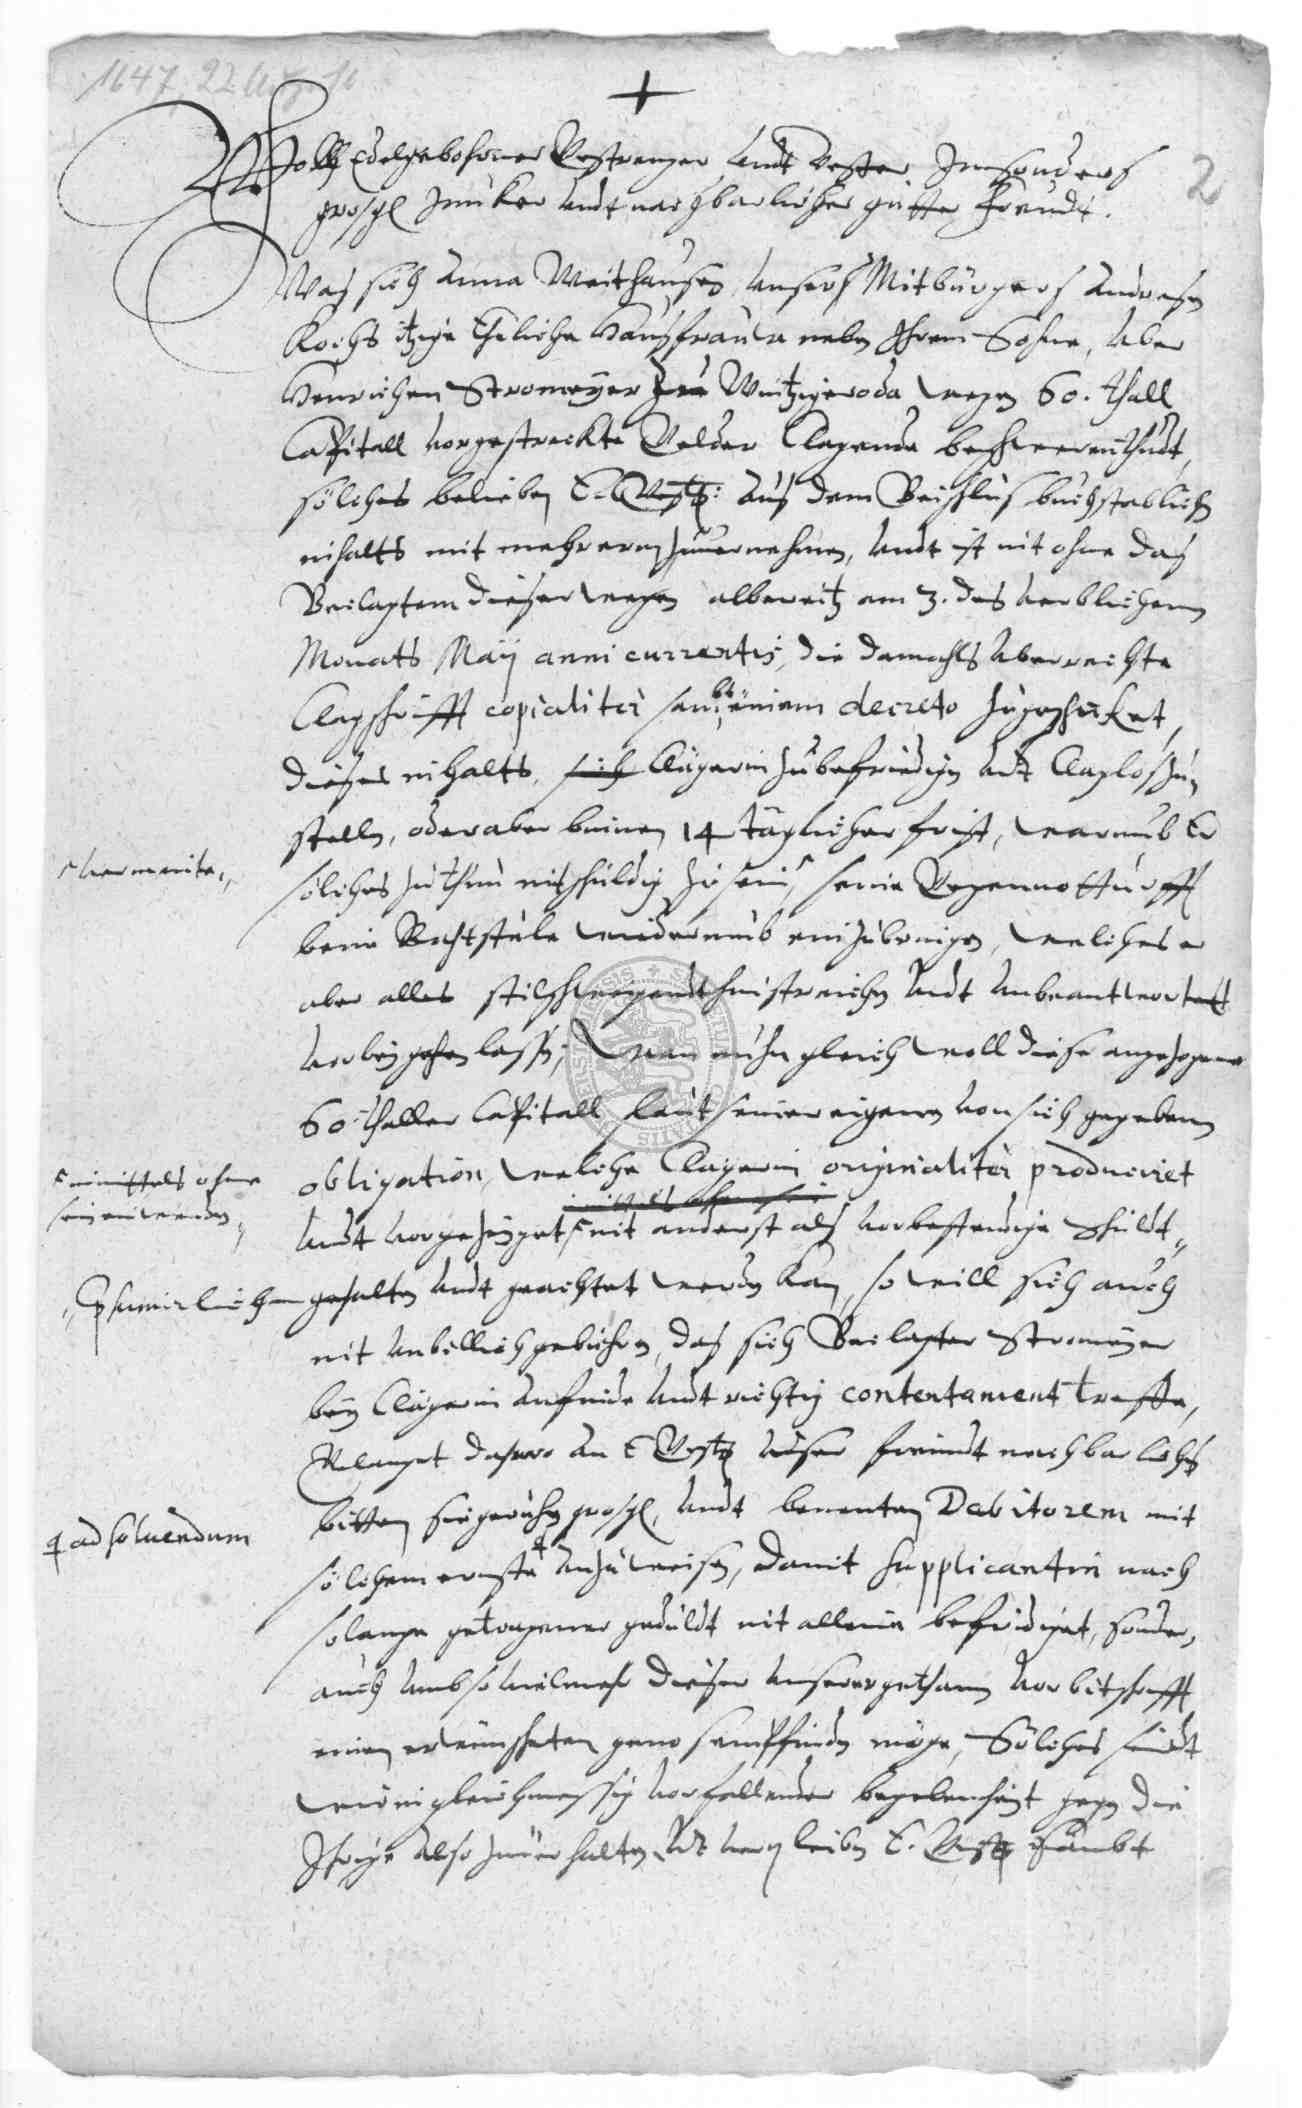 1647 22 Aug
+
2
WollEdelgebohrner Gestrenger undt Vester Insonders
großgl Juncker undt nachbarlicher gutter Freundt.
Was sich Anna Weithausen unsers Mitbürgers Andresen
Kochs itzige Eheliche Haußfrauw nebn Ihrem Sohne, uber
Henrichen Stromeyer zu Wintzigeroda wegen 60. thall
Capitall vorgestreckte Gelder Clagende beschweren thut,
solches belieben E. Gestr: aus dem Beischlus buchstablichs
inhalts mit mehreren zuvernehmen, undt ist nit ohne das
Beclagtem dieser wegen albereitz am 3. des verblichenen
Monats Maÿ anni currentis, die damahls uberreichte
Clagschrifft copialiter sambt einem decreto zugeschicket,
dieses inhalts, sich Clägerin zubefriedign undt Claglos zu
stelln, oder aber binnen 14 täglicher frist, warumb Er
vermeinte,
solches zu thun nit schuldig zu sein, seine Gegennotturfft
beim Rechtstule wiederumb einzubringen, welches er
aber alles stilschweigendt hinstreichn undt unbeantwortett
vorbey gehen lassn; Wan nuhn gleich woll diese angezogene
60 thaller Capitall, laut seiner eigenen von sich gegebenen
obligation, welche Clägerin originaliter produciret
inmittels ohne
sein einwenden
undt vorgezeiget nit anderst als vor bestendige Schuldt
gehalten undt geachtet werden kan, so will sich auch
nit unbillich gebühren, das sich Beclagter Stromeyer
bey Clägerin anfinde undt richtig contentament treffe,
Gelanget dahero an E Gestr unser freundt nachbarlichs
bitten sie geruhn großgl, undt benenten Debitorem mit
ad solvendum
solchem ernste anzuweisen, damit supplicantin nach
so lange getragener geduldt nit alleine befridiget, sonder,
auch umb so vielmehr dieser unserer gethanen vorbitschrifft
einen erwünscheten genos empfinden möge, Solches sindt
wir in gleichmessig vorfallender begebenheit gegn die
Ihrige also zuverhalten undt verbleiben E. Gestr sambt